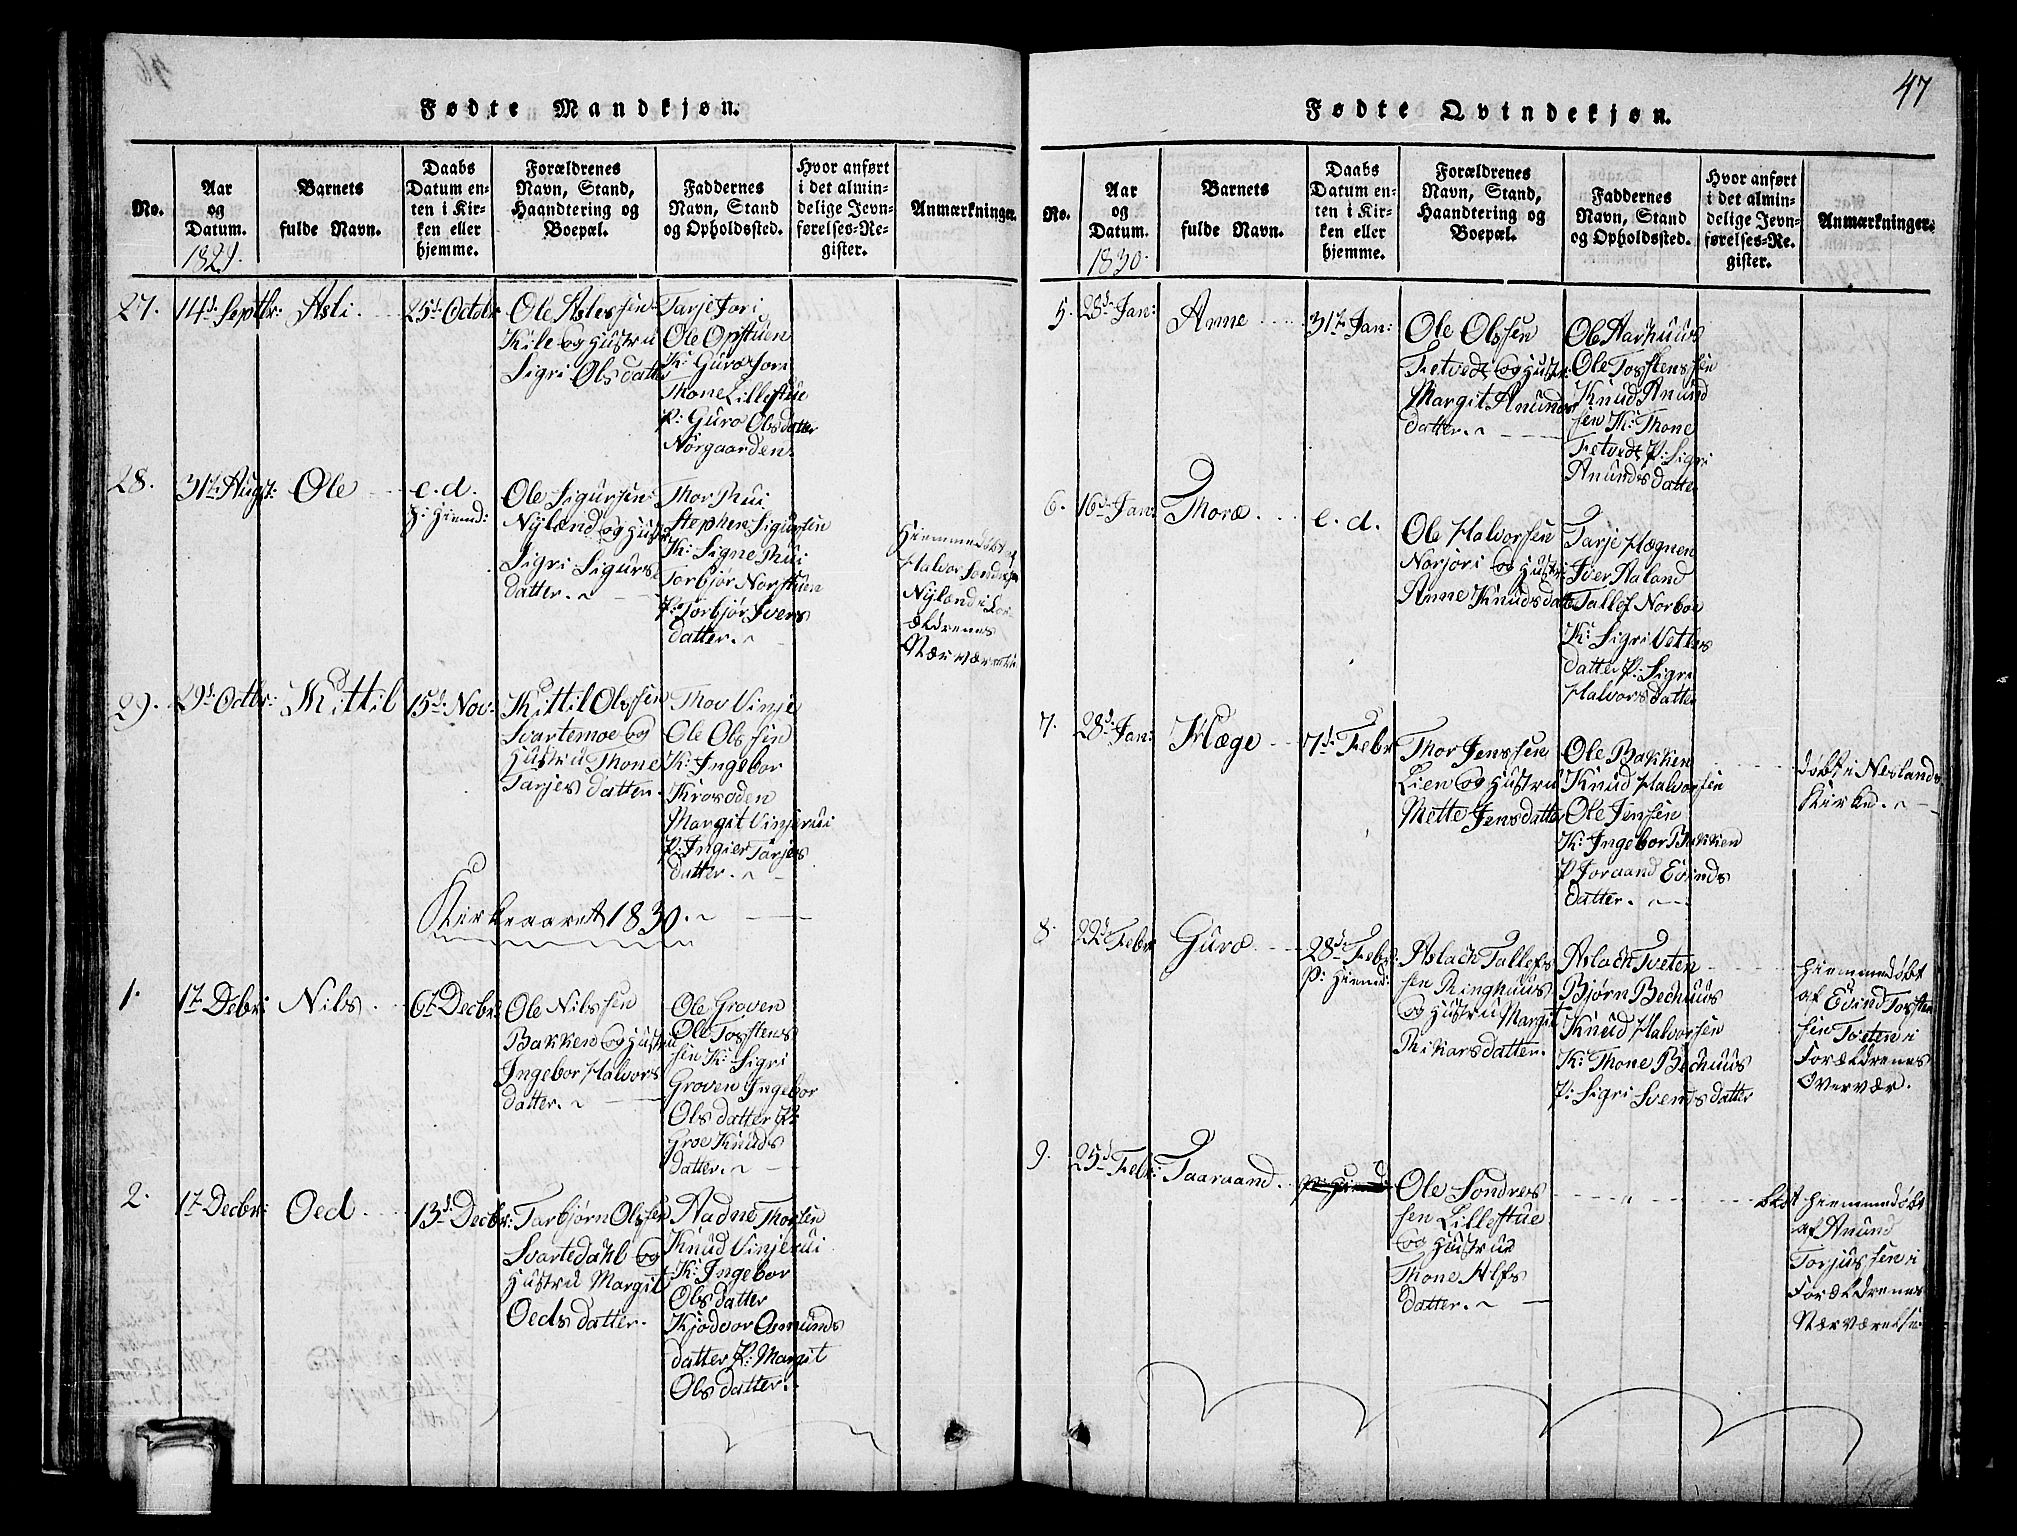 47
Fødte Mandkjøn.
No.
Aar
og
Datum.
1829.
Barnets
fulde Navn.
Daabs
Datum en-
ten i Kir-
ken eller
hjemme.
Forældrenes
Navn, Stand,
Haandtering og
Boepæl.
Faddernes
Navn, Stand
og Opholdssted.
Hvor anført
i det almin-
delige Jevn-
førelses-Re-
gister.
Anmærkninger.
27.
14d Septbr:
Asli
25d Octobr
Ole Aslessen
Kile og Hustru
Sigri Olsdatter
Tarje Jori
Ole Opstuen
K: Guro Jori
Thone Lillestue
P: Guro Olsdatter
Norgaarden.
28.
31t August:
Ole
e. d.
H: Hiemd:
Ole Sigursen
Nyland og Hustr
Sigri Sigurs
datter.
Thor Rui
Stephen Sigursen
K: Signe Rui
Torbjør Norstuen
P: Torbjør Ivers
datter.
Hiemmedøbt af
Halvor Sondresen
Nyland i For-
ældrenes
Nærværelse
29.
29d Octbr:
Kittil
15d Nov:
Kittil Olssen
Svartemoe og
Hustru Thone
Tarjes datter.
Thov Vinje
Ole Olssen
K: Ingebor
Krosoden
Margit Vinjerui
P: Ingier Tarjes
datter.
Kirkeaaret 1830.
1.
1t Debr:
Nils
6t Decbr:
Ole Nilssen
Bakken og Hustru
Ingebor Halvors
datter.
Ole Groven
Ole Tostens
sen K: Sigri
Groven Ingebor
Olsdatter P:
Groe Knuds
datter.
2.
1t Decbr:
Oed
13d Decbr:
Tarbjørn Olssen
Svartedahl og
Hustru Margit
Oedsdatter.
Aadne Thorsen
Knud Vinjerui
K: Ingebor
Olsdatter
Kjødvor Osmunds
datter P: Margit
Olsdatter.
Fødte Qvindekjøn.
No.
Aar
og
Datum.
1830.
Barnets
fulde Navn.
Daabs
Datum en-
ten i Kir-
ken eller
hjemme.
Forældrenes
Navn, Stand,
Haandtering og
Boepæl.
Faddernes
Navn, Stand
og Opholdssted.
Hvor anført
i det almin-
delige Jevn-
førelses-Re-
gister.
Anmærkninger.
5.
28d Jan:
Anne
31t Jan:
Ole Olssen
Tetvedt og Hustr:
Margit Anunds
datter.
Ole Aarhuus
Ole Tostenssen
Knud Anund
sen K: Thone
Tetvedt P: Sigri
Anundsdatter
6.
16d Jan:
Thore
e. d.
Ole Halvorsen
Norjori og Hustr:
Anne Knudsdatter
Tarje Hægnen
Iver Aaland
Tallef Norboe
K: Sigri Vetles
datter P: Sigri
Halvorsdatter
7.
28d Jan:
Hæge
7d Febr
Thor Jenssen
Lien og Hustru
Mette Jensdatter
Ole Bakken
Knud Halvorsen
Ole Jensen
K: Ingebor Bakken
P: Joraand Evinds
datter.
døbt i Neslands
Kirke.
8.
22d Febr
Guro
28d Febr:
P: Hiemd:
Aslach Tallefs
sen Ringhuus
og Hustru Margit
Rikarsdatter.
Aslach Tveten
Bjørn Bechuus
Knud Halvorsen
K: Thone Bechuus
P: Sigri Svendsdatter
Hiemmedøbt
af Evind Tosten
sen Tveten i
Forældrenes
Overvær.
9.
25d Febr:
Taaraand.
Ole Sondres
sen Lillestue
og Hustrue
Thone Alfs
datter.
Hiemmedøbt
af Anund
Torjussen i
Forældrenes
Nærværelse.